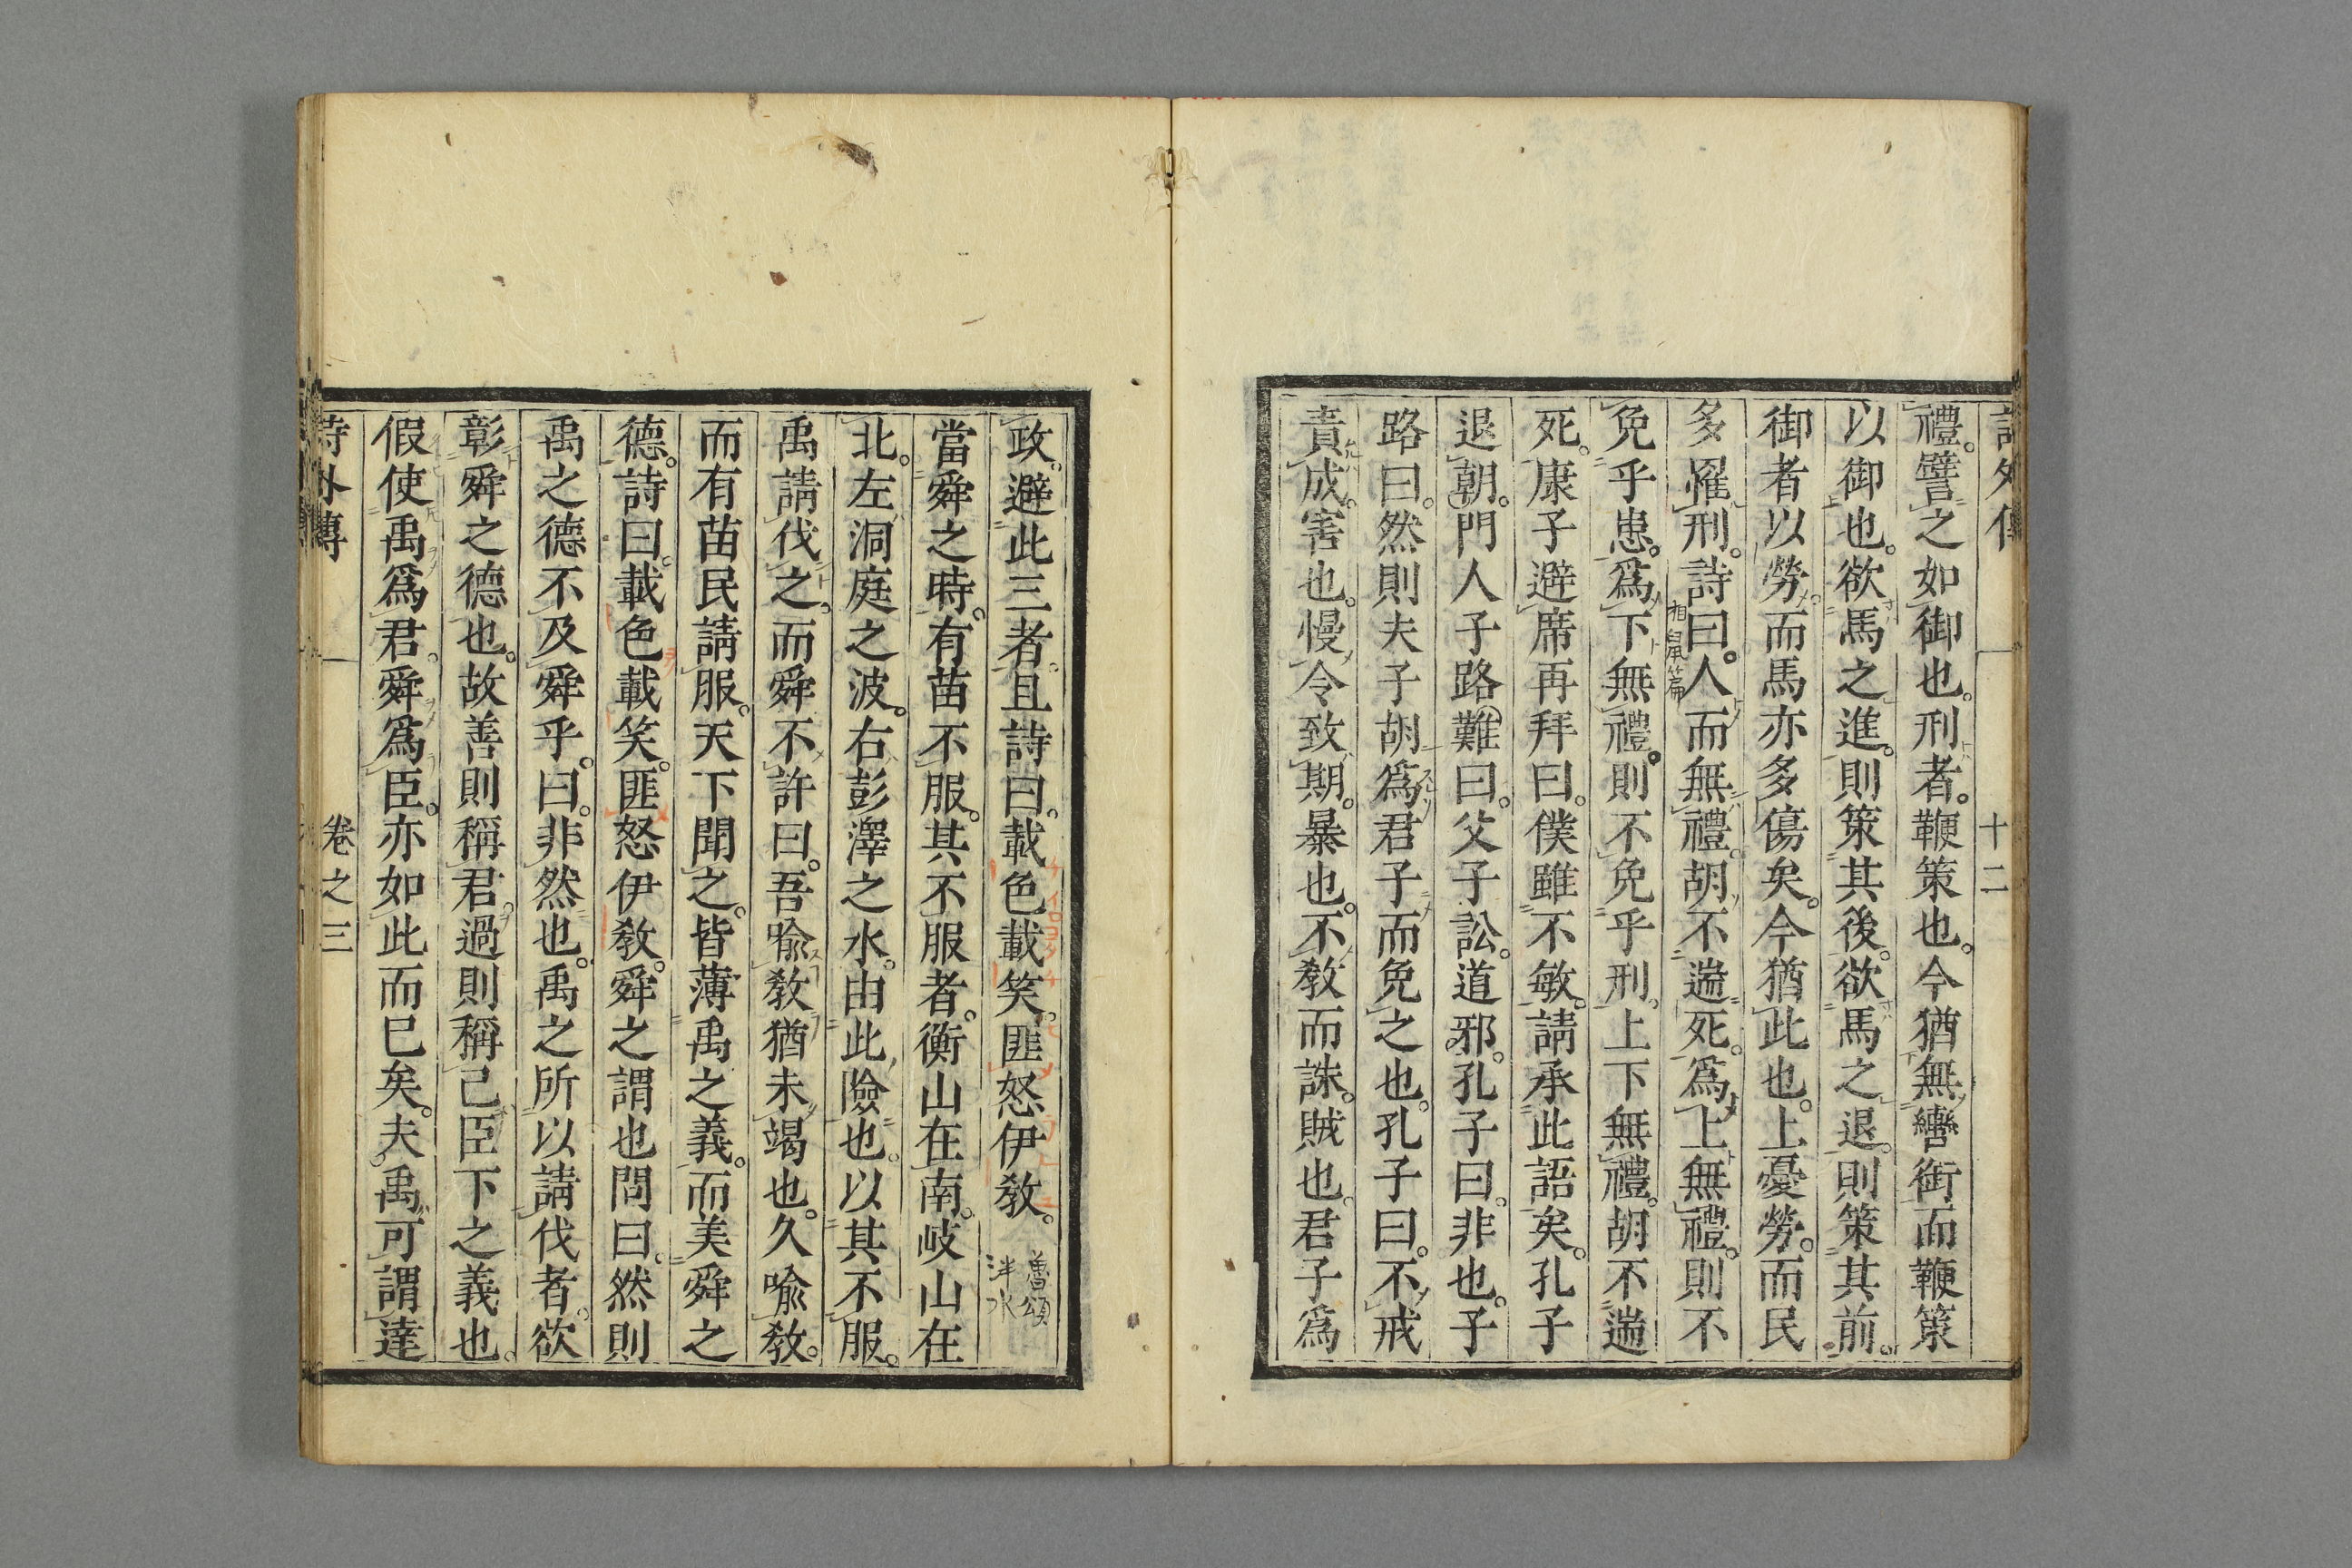 禮。譬之如御也。刑者。鞭策也。今猶無轡銜而鞭策
以御也。欲馬之進。則策其後。欲馬之退。則策其前。
御者以勞。而馬亦多傷矣。今猶此也。上憂勞。而民
多罹刑。詩曰。人而無禮。胡不遄死。爲上無禮。則不
相鼠篇
免乎患。爲下無禮。則不免乎刑。上下無禮。胡不遄
死。康子避席再拜曰。僕雖不敏。請承此語矣。孔子
退朝。門人子路難曰。父子訟。道邪。孔子曰。非也。子
路曰。然則夫子胡爲君子而免之也。孔子曰。不戒
責成。害也。慢令致期。暴也。不敎而誅。賊也。君子爲
十二
政。避此三者。且詩曰。載色載笑。匪怒伊敎。
魯頌
泮水
當舜之時。有苗不服。其不服者。衡山在南。岐山在
北。左洞庭之波。右彭澤之水。由此險也。以其不服。
禹請伐之。而舜不許曰。吾喩敎猶未竭也。久喩敎。
而有苗民請服。天下聞之。皆薄禹之義。而美舜之
德。詩曰。載色載笑。匪怒伊敎。舜之謂也。問曰。然則
禹之德不及舜乎。曰。非然也。禹之所以請伐者。欲
彰舜之德也。故善則稱君。過則稱己。臣下之義也。
假使禹爲君。舜爲臣。亦如此而已矣。夫禹可謂達
詩外傳 卷之三